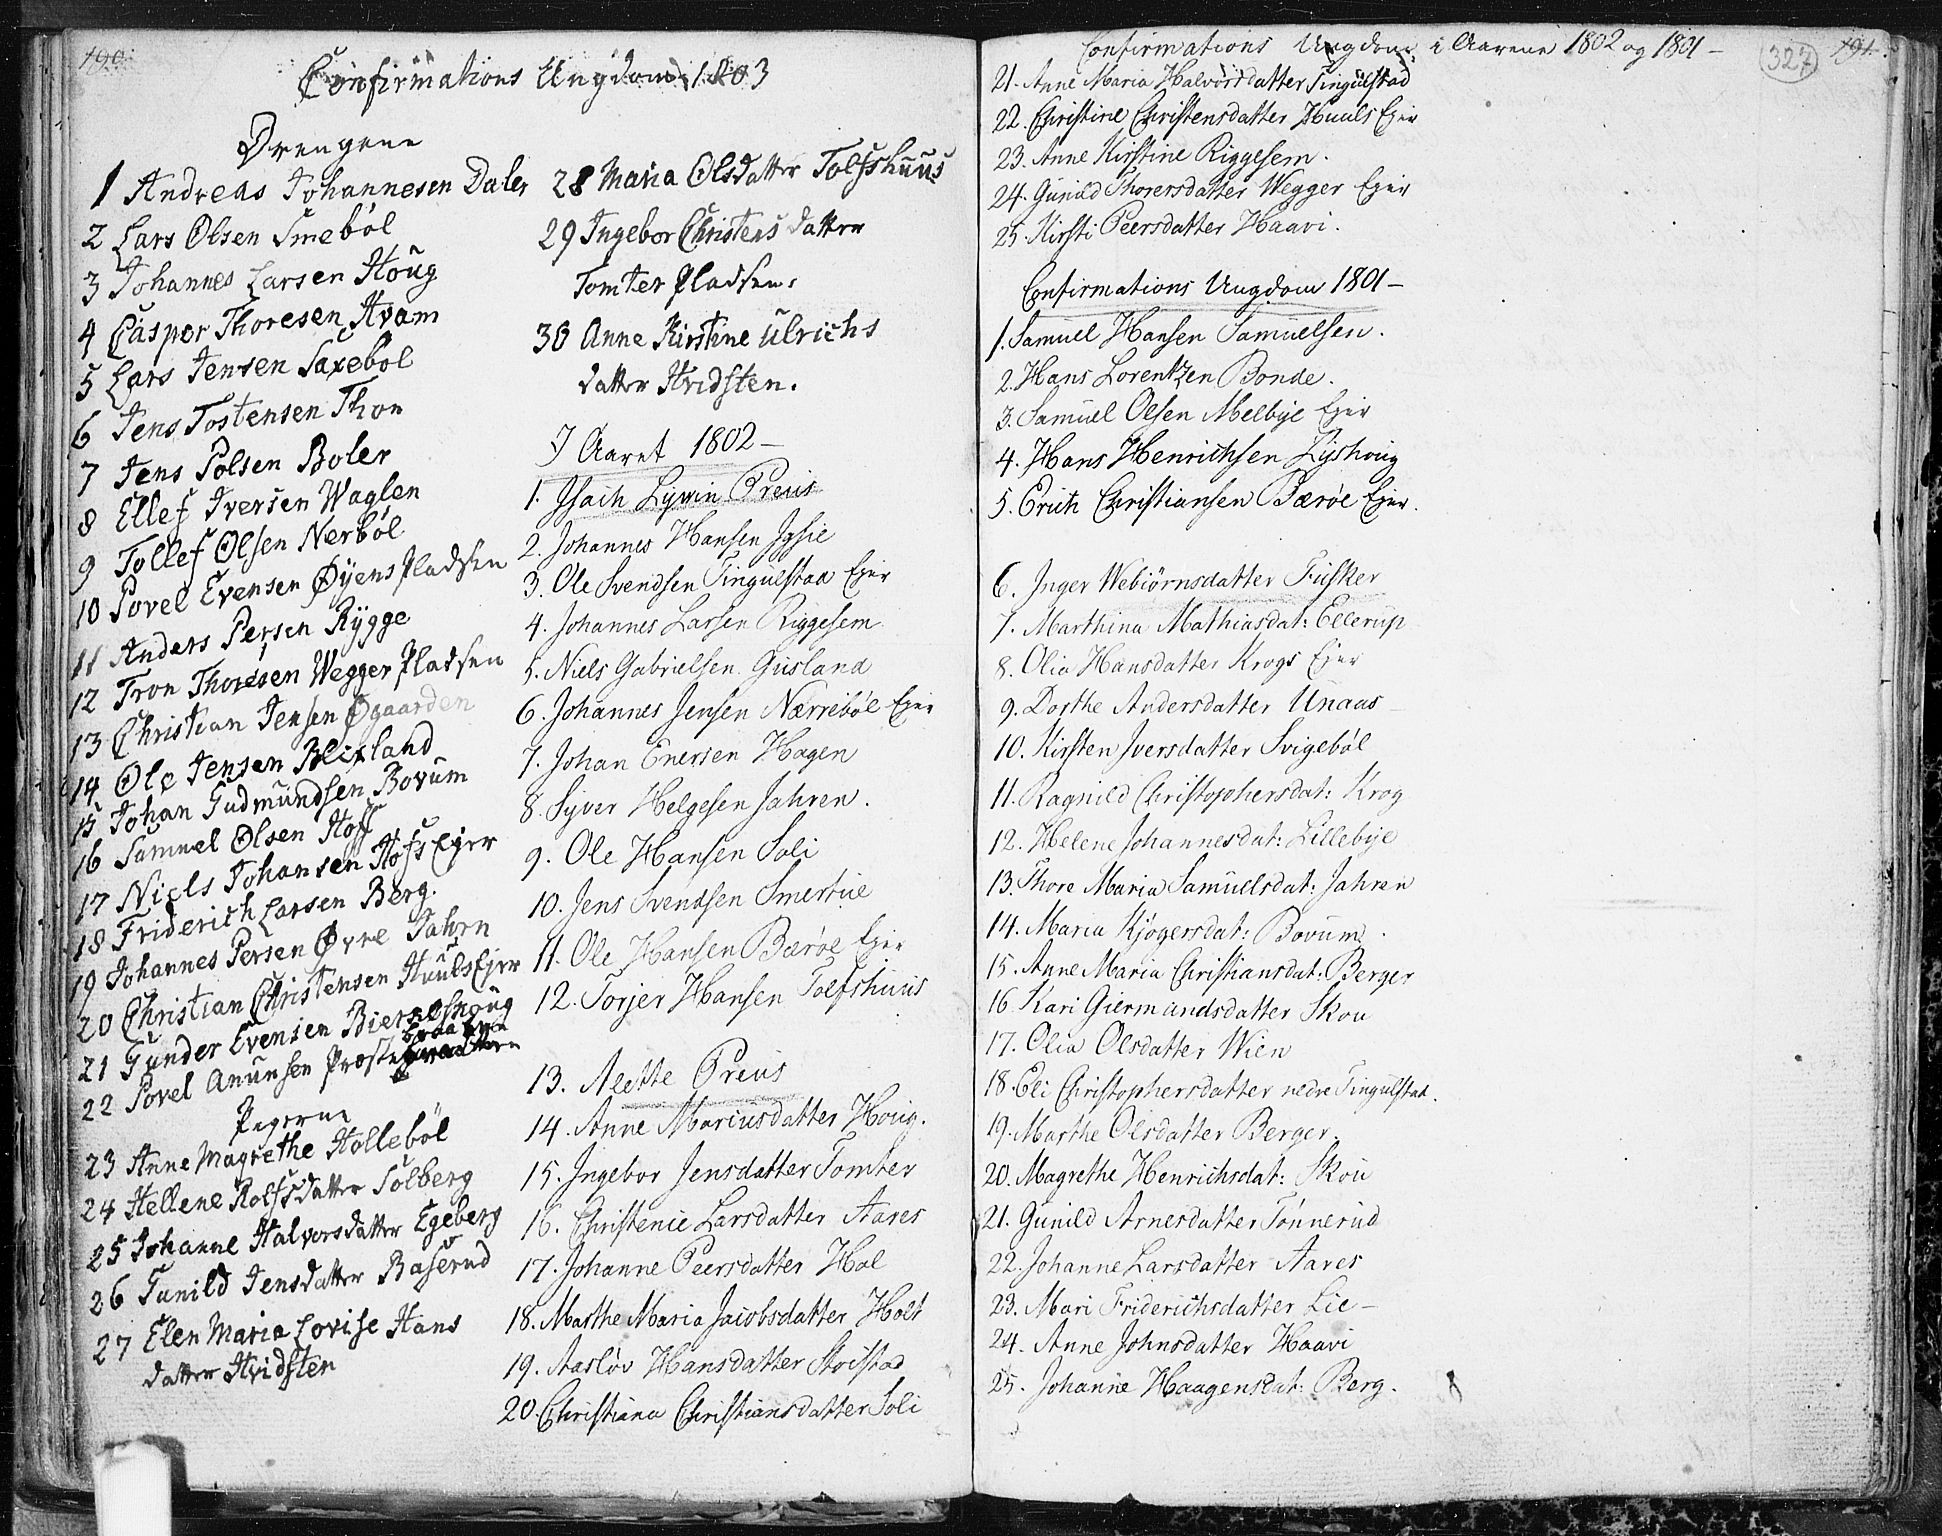 190.
Confirmations Ungdom 1803
Drengene
1 Andreas Johannesen Daler
2 Lars Olsen Smebøl
3 Johannes Larsen Houg
4 Casper Thoresen Hvam
5 Lars Jensen Saxebøl
6 Jens Tostensen Thon
7 Jens Polsen Boler
8 Ellef Iversen Waglen
9 Tollef Olsen Nerbøl
10 Povel Evensen Øyens Pladsen
11 Anders Persen Rygge
12 Tron Thoresen Wegger Pladsen
13 Christian Jensen Øgaarden
14 Ole Jensen Blixland
15 Johan Gudmundsen Bovum
16 Samuel Olsen Hoff
17 Niels Johansen Hofs Ejer
18 Friderich Larsen Berg.
19 Johannes Persen Øvre Jahrn
20 Christian Christensen Huuls Ejer
21 Gunder Evensen Bierneshoug
22 Povel Anunsen Præste
Pigerne
23 Anne Magrethe Hollebøl
24 Hellene Rolfsdatter Solberg
25 Johanne Halvorsdatter Egeberg
26 Gunild Jensdatter Baserud
27 Elen Maria Lovise Hans
datter Hvidsten
28 Maria Olsdatter Tolfshuus
29 Ingebor Christens datter
Tomter Pladsen.
30 Anne Kirstine Ulrichs
datter Hvidsten.
I Aaret 1802 —
1. Isach Lyvin Preus
2. Johannes Hansen Igsie
3. Ole Svendsen Tingulstad Ejer
4. Johannes Larsen Riggesem
5. Niels Gabrielsen Gusland
6. Johannes Jensen Nærrebøl Ejer
7. Johan Enersen Hagen
8. Syver Helgesen Jahren.
9. Ole Hansen Soli
10. Jens Svendsen Smertue
11. Ole Hansen Bærøe Ejer
12. Torjer Hansen Tolfshuus
13. Alette Preus
14. Anne Mariusdatter Houg.
15. Ingebor Jensdatter Tomter
16. Christenie Larsdatter Aares
17. Johanne Peersdatter Hol
18. Marthe Maria Jacobsdatter Holt
19. Aasløv Hansdatter Stoistad
20. Christiana Christiansdatter Soli
Confirmations Ungdom i Aarene 1802 og 1801 —
327
191.
21. Anne Maria Halvorsdatter Tingulstad
22. Christine Christensdatter Huuls Ejer
23. Anne Kirstine Riggesem.
24. Gunild Thorersdatter Wegger Ejer
25. Kirsti Peersdatter Haavi.
Confirmations Ungdom 1801 —
1. Samuel Hansen Samuelsen.
2. Hans Lorentzen Bonde.
3. Samuel Olsen Melbye Ejer
4. Hans Henrichsen Lyshoug
5. Erich Christiansen Bærøe Ejer.
6. Inger Webiørnsdatter Fusker
7. Marthina Mathiasdat: Ellerup
8. Olia Hansdatter Krogs Ejer
9. Dorthe Andersdatter Unaas —
10. Kirsten Iversdatter Svigebøl
11. Ragnild Christophersdat: Krog
12. Helene Johannesdat: Lillebye
13. Thore Maria Samuelsdat: Jahren
14. Maria Kjøgersdat: Bovum.
15. Anne Maria Christiansdat: Berger
16. Kari Giermundsdatter Skou
17. Olia Olsdatter Wien
18. Eli Christophersdatter nedre Tingulstad.
19. Marthe Olsdatter Berger.
20. Magrethe Henrichsdat: Skou
21. Gunild Arnesdatter Tønnerud
22. Johanne Larsdatter Aares
23. Mari Friderichsdatter Lie —
24. Anne Johnsdatter Haavi
25. Johanne Haagensdat: Berg.